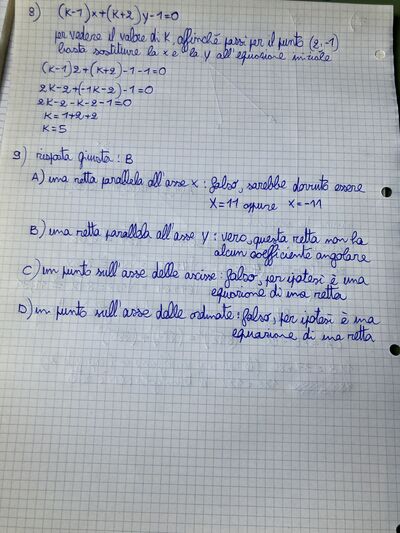 8) (K-1)x+(K+2)y-1=0
per vedere il valore di K, affinché passi per il punto (2,-1)
basta sostituire la x e la y all'equazione iniziale
(K-1)2+(K+2)-1-1=0
2K-2+(-1K-2)-1=0
2K-2-K-2-1=0
K=1+2+2
K=5
9) risposta giusta: B
A) una retta parallela all'asse x: falso, sarebbe dovuto essere
X=11 oppure x=-11
B) una retta parallela all'asse y: vero, questa retta non ha
alcun coefficiente angolare
C) un punto sull'asse delle ascisse: falso, per ipotesi è una
equazione di una retta
D) un punto sull'asse delle ordinate: falso, per ipotesi è una
equazione di una retta